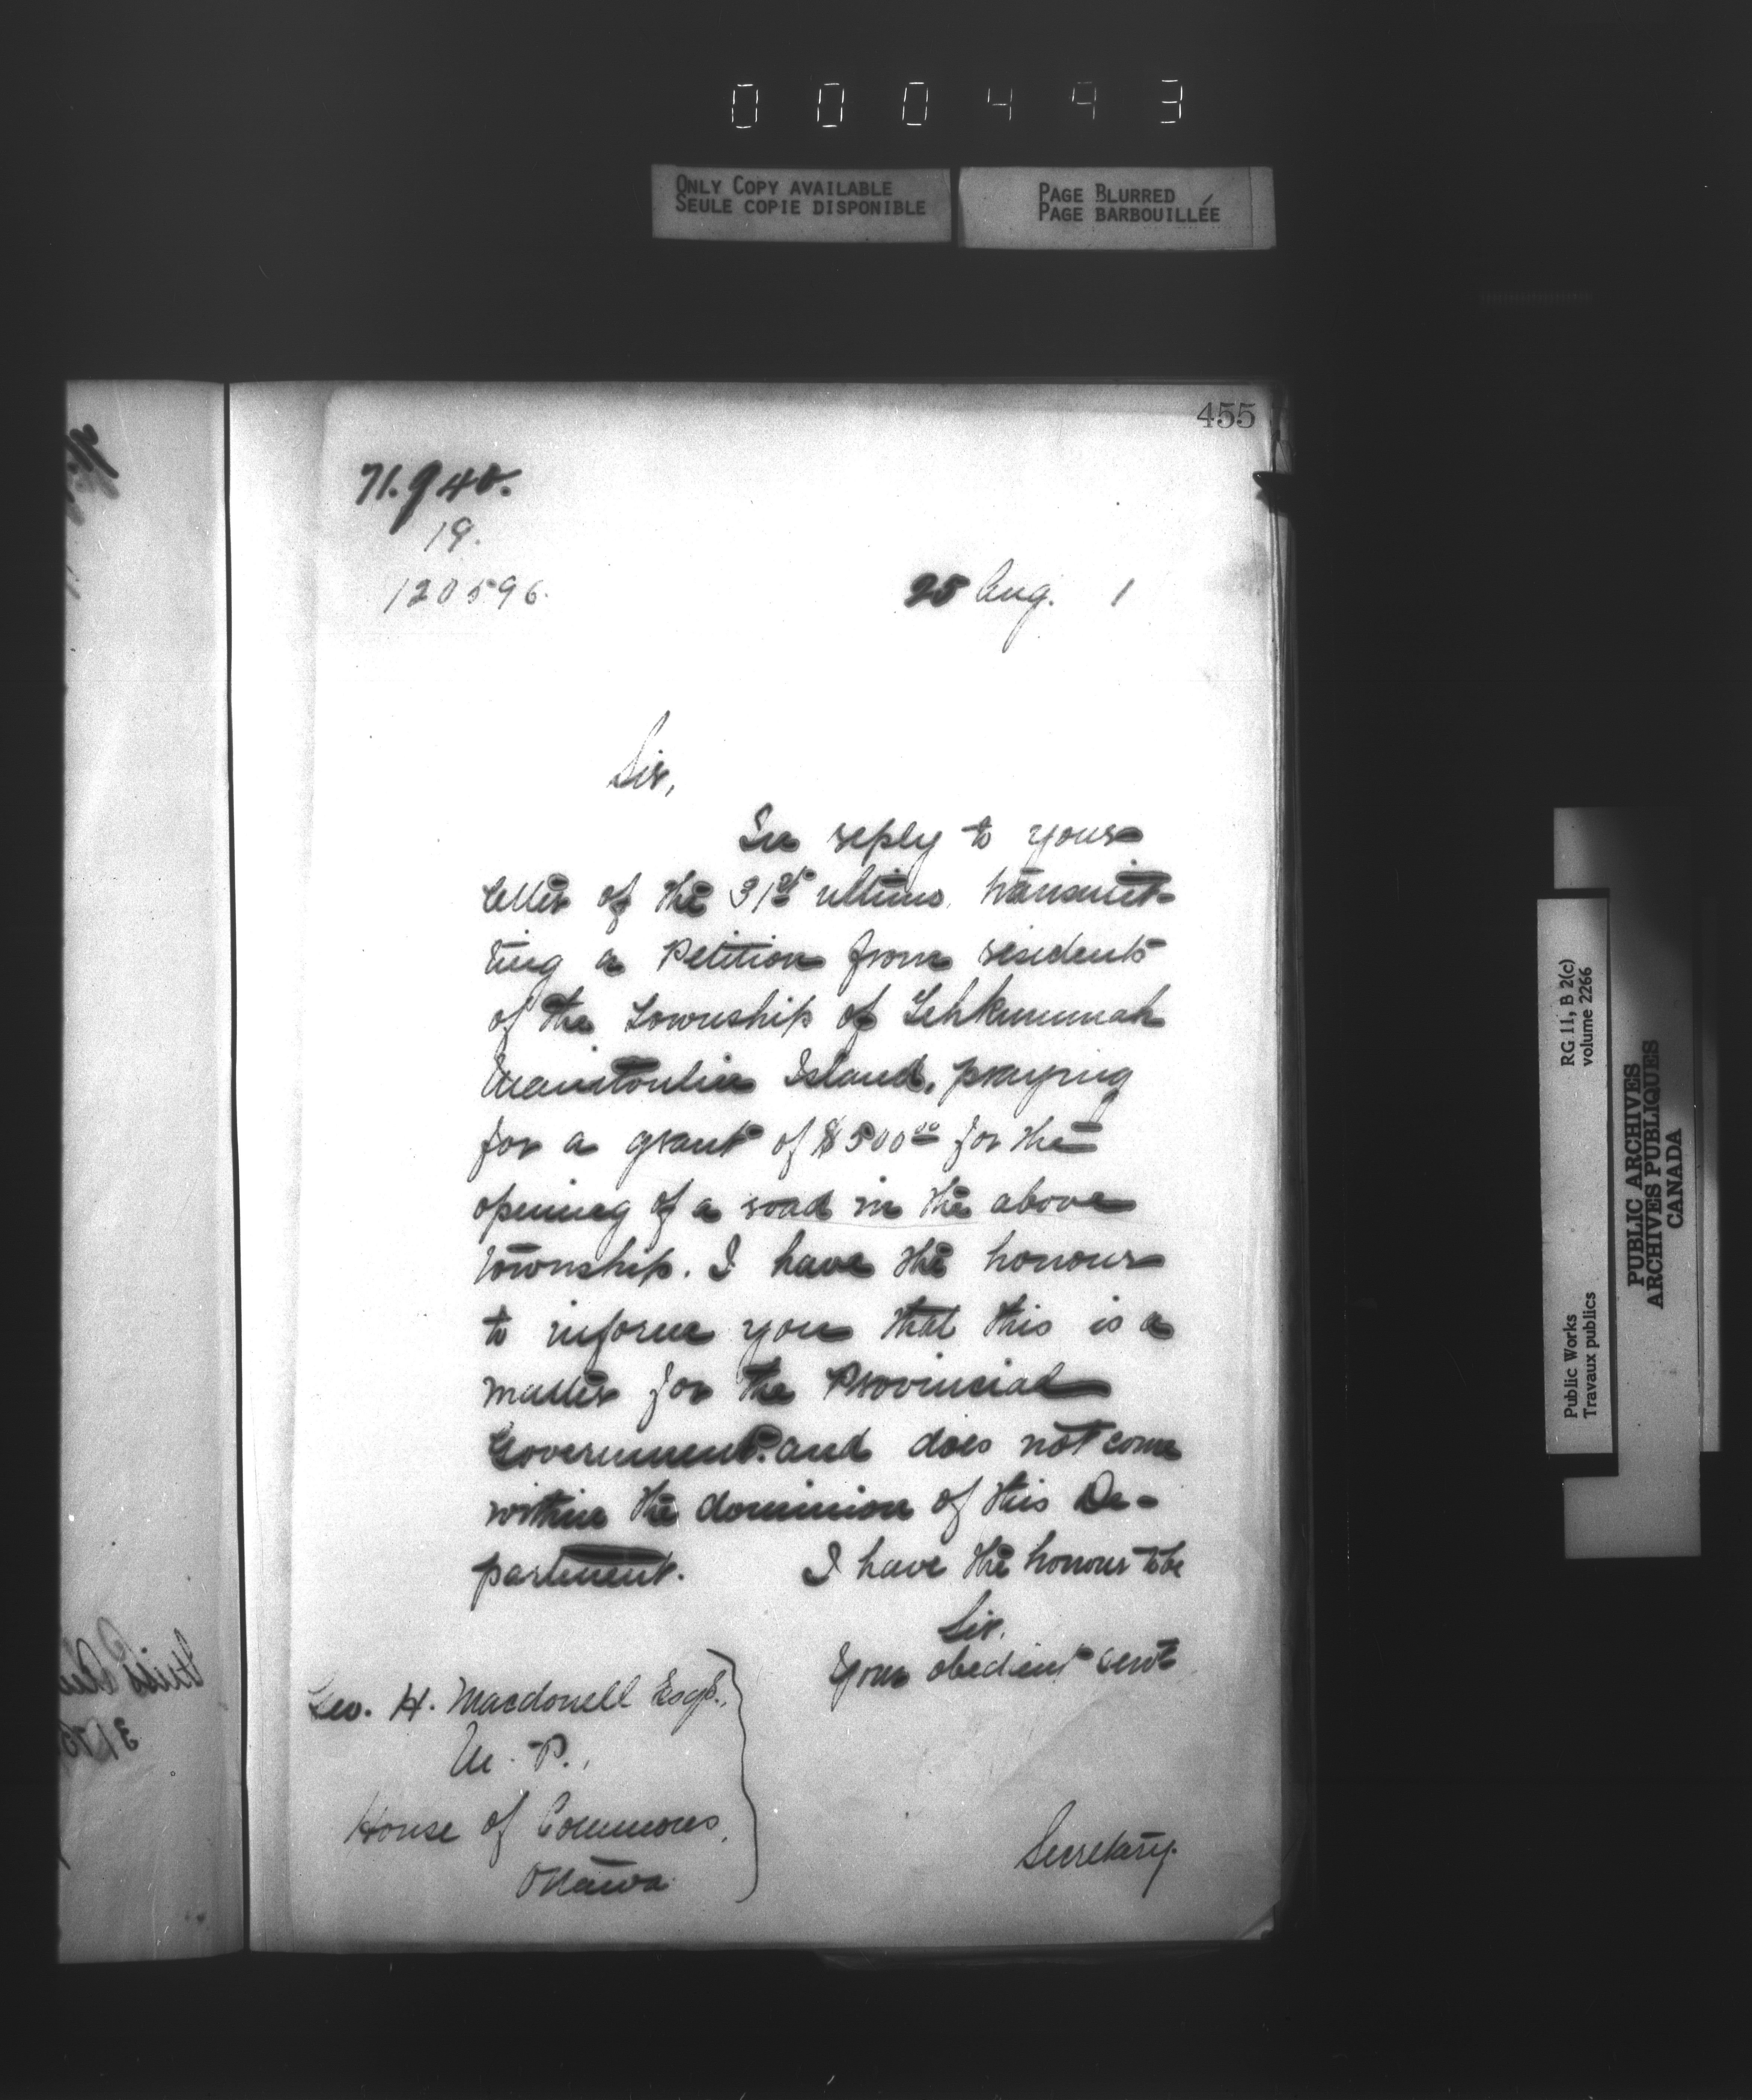 000493
ONLY COPY AVAILABLE
SEULE COPIE DISPONIBLE
PAGE BLURRED
PAGE BARBOUILLÉE
455
71.940.
19.
120596.
25 Aug. 1
Sir,
In reply to your
letter of the 31st ultimo, transmit-
ting a Petition from residents
of the Township of Tehkummah
Manitoulin Island, praying
for a grant of $500.00 for the
opening of a road in the above
township. I have the honour
to inform you that this is a
matter for the Provincial
Government and does not come
within the dominion of this De-
partment. I have the honour to be
Sir,
Your obedient servt
Geo. H. Macdonell Esqr.,
M. P.,
House of Commons,
Ottawa
Secretary.
RG 11, B 2(c)
volume 2266
Public Works
Travaux publics
PUBLIC ARCHIVES
ARCHIVES PUBLIQUES
CANADA